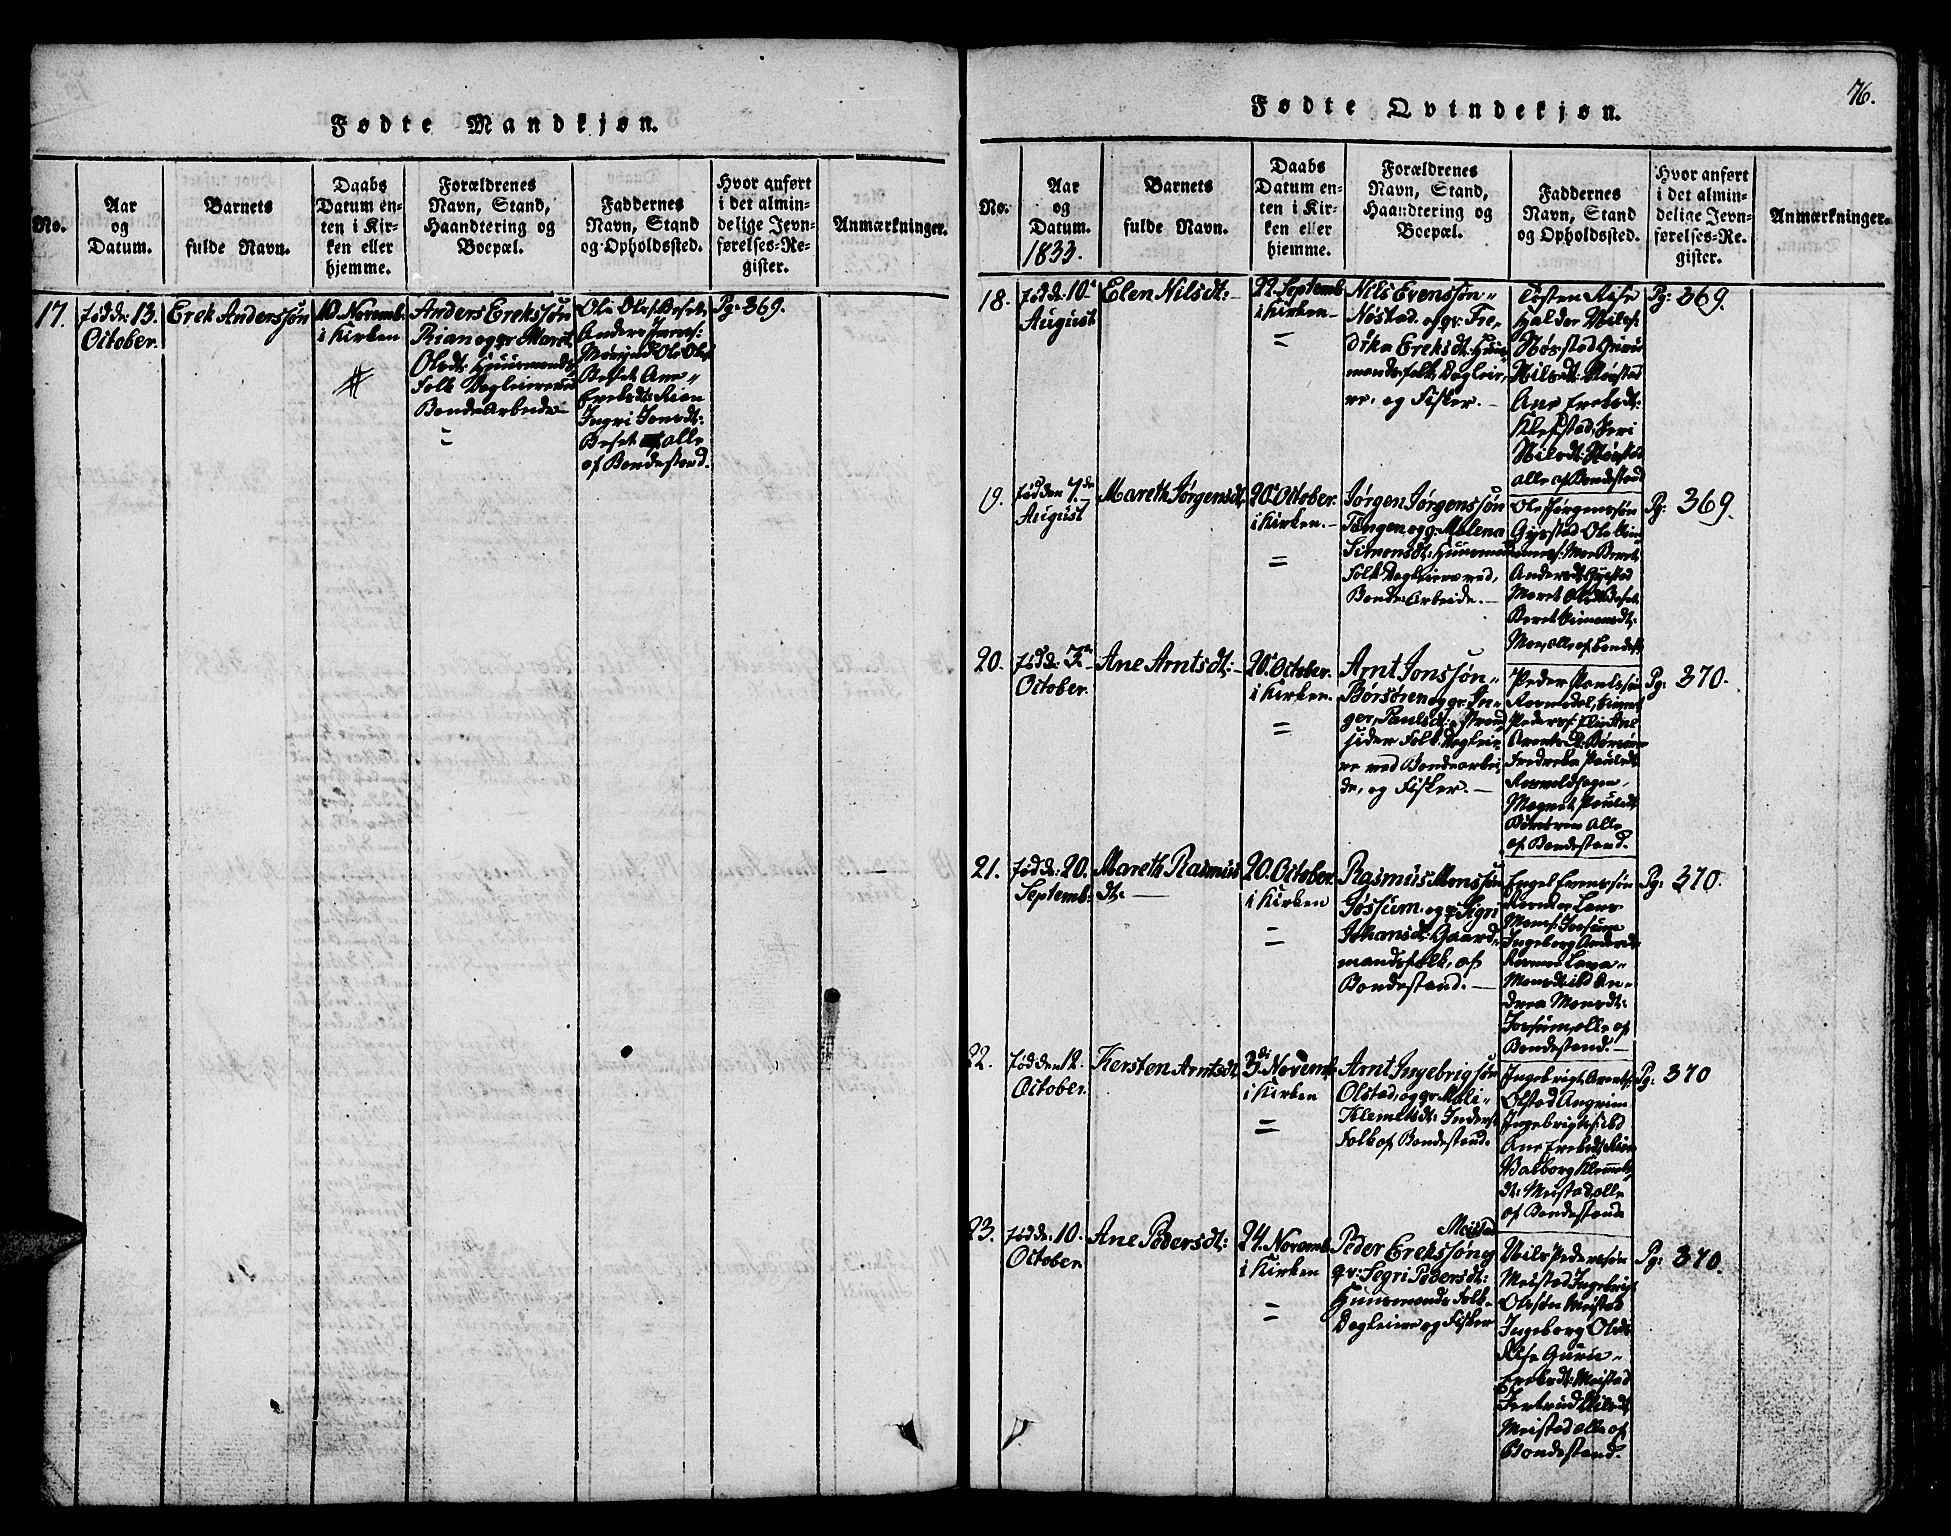 Fødte Mandkjøn.
No.
Aar
og
Datum.
Barnets
fulde Navn.
Daabs
Datum en-
ten i Kir-
ken eller
hjemme.
Forældrenes
Navn, Stand,
Haandtering og
Boepæl.
Faddernes
Navn, Stand
og Opholdssted.
Hvor anført
i det almin-
delige Jevn-
førelses-Re-
gister.
Anmærkninger.
17.
fødd: 13.
October.
Erek Anderssøn
10. Novemb.
i Kirken
Anders Erekssøn
Rian og qv: Maret
Olsdt: Huusmands
Folk Dagleiere ved
Bonde Arbeide
Ole Olss: Beset
Anders
Ole Olss:
Beset Ane
Ereksdt: Rian
Ingri Jonsdt:
Beset alle
af Bondestand.
Pg: 369.
76.
Fødte Qvindekjøn.
No.
Aar
og
Datum.
1833.
Barnets
fulde Navn.
Daabs
Datum en-
ten i Kir-
ken eller
hjemme.
Forældrenes
Navn, Stand,
Haandtering og
Boepæl.
Faddernes
Navn, Stand
og Opholdssted.
Hvor anført
i det almin-
delige Jevn-
førelses-Re-
gister.
Anmærkninger.
18.
fødd: 10.
August
Elen Nilsdt:
22. Septemb
i Kirken
Nils Evenssøn
Nøstad og qv: Fre-
drika Ereksdt: Huus-
mandsfolk, Dagleie-
re, og Fisker.
Tosten Rise
Haldor Nilss:
Nøstad
Nilsdt: Nøstad
Ane Ereksdt:
Klefstad,
Nilsdt: Nøstad
alle af Bondestand
Pg: 369.
19.
fødden 7.de
August
Mareth Jørgensdt
20. October.
i Kirken.
Jørgen Jørgenssøn
Tangen, og q: Malena
Simonsdt: Huusmand
Folk Dagleiere ved,
Bonde Arbeide.
Ole Jørgenssøn
Gyestad Ole
Andersdt: Gyestad
Maret Olsdt: Beset
Beret Simonsdt:
Moe, alle af Bondest
Pg: 369.
20.
fødd: 3.
October.
Ane Arntsdt:
20. October.
i Kirken.
Arnt Jonssøn
Børsøren og qv: In-
ger, Paulsdt: Strand
sider Folk Dagleie-
re ved Bondearbei-
de, og Fisker.
Peder Paulssøn
Pederss:
Arntsdt: Børsøren
Fredreka Paulsdt
Magnet Paulsdt
Børsøren alle
af Bondestand.
Pg: 370.
21.
fødd: 20.
Septemb:
Mareth Rasmus
dt:
20. October.
i Kirken
Rasmus Monssøn
Jøssum. og q: Sigri
Johansdt: Gaard-
mandsfolk, af
Bondestand.
Engel Evenssøn
Lars
Monss: Jossum
Ingeborg Andersdt
Monsdt: ibd An-
drea Monsdt:
Jossum, alle af
Bondestand.
Pg: 370.
22.
fødden 12.
October.
Kersten Arntsdt
3di Novemb.
i Kirken
Arnt Ingebrigssøn
Olstad, og qv: Mali
Klemetsdt: Inderst
Folk af Bondestand.
Ingebrigt Arntss:
Olstad Angrim
Ingebrigtss: ibd
Ane Ereksdt: Rian
Valborg Klemets
dt: Meistad, alle
af Bondestand
Pg: 370
23.
fødd: 10.
October
Ane Pedersdt:
24. Novemb.
i Kirken
Meistad
Peder Erekssøn og
qv: Segri Pedersdt:
Huusmands Folk
Dagleiere og Fisker
Nils Pederssøn
Meistad Ingebrigt
Olssøn Meistad
Ingeborg Olsdt
Rise Guru
Ereksdt: Meistad
Gertrud Nilsdt
Meistad alle af
Bondestand.
Pg: 370.